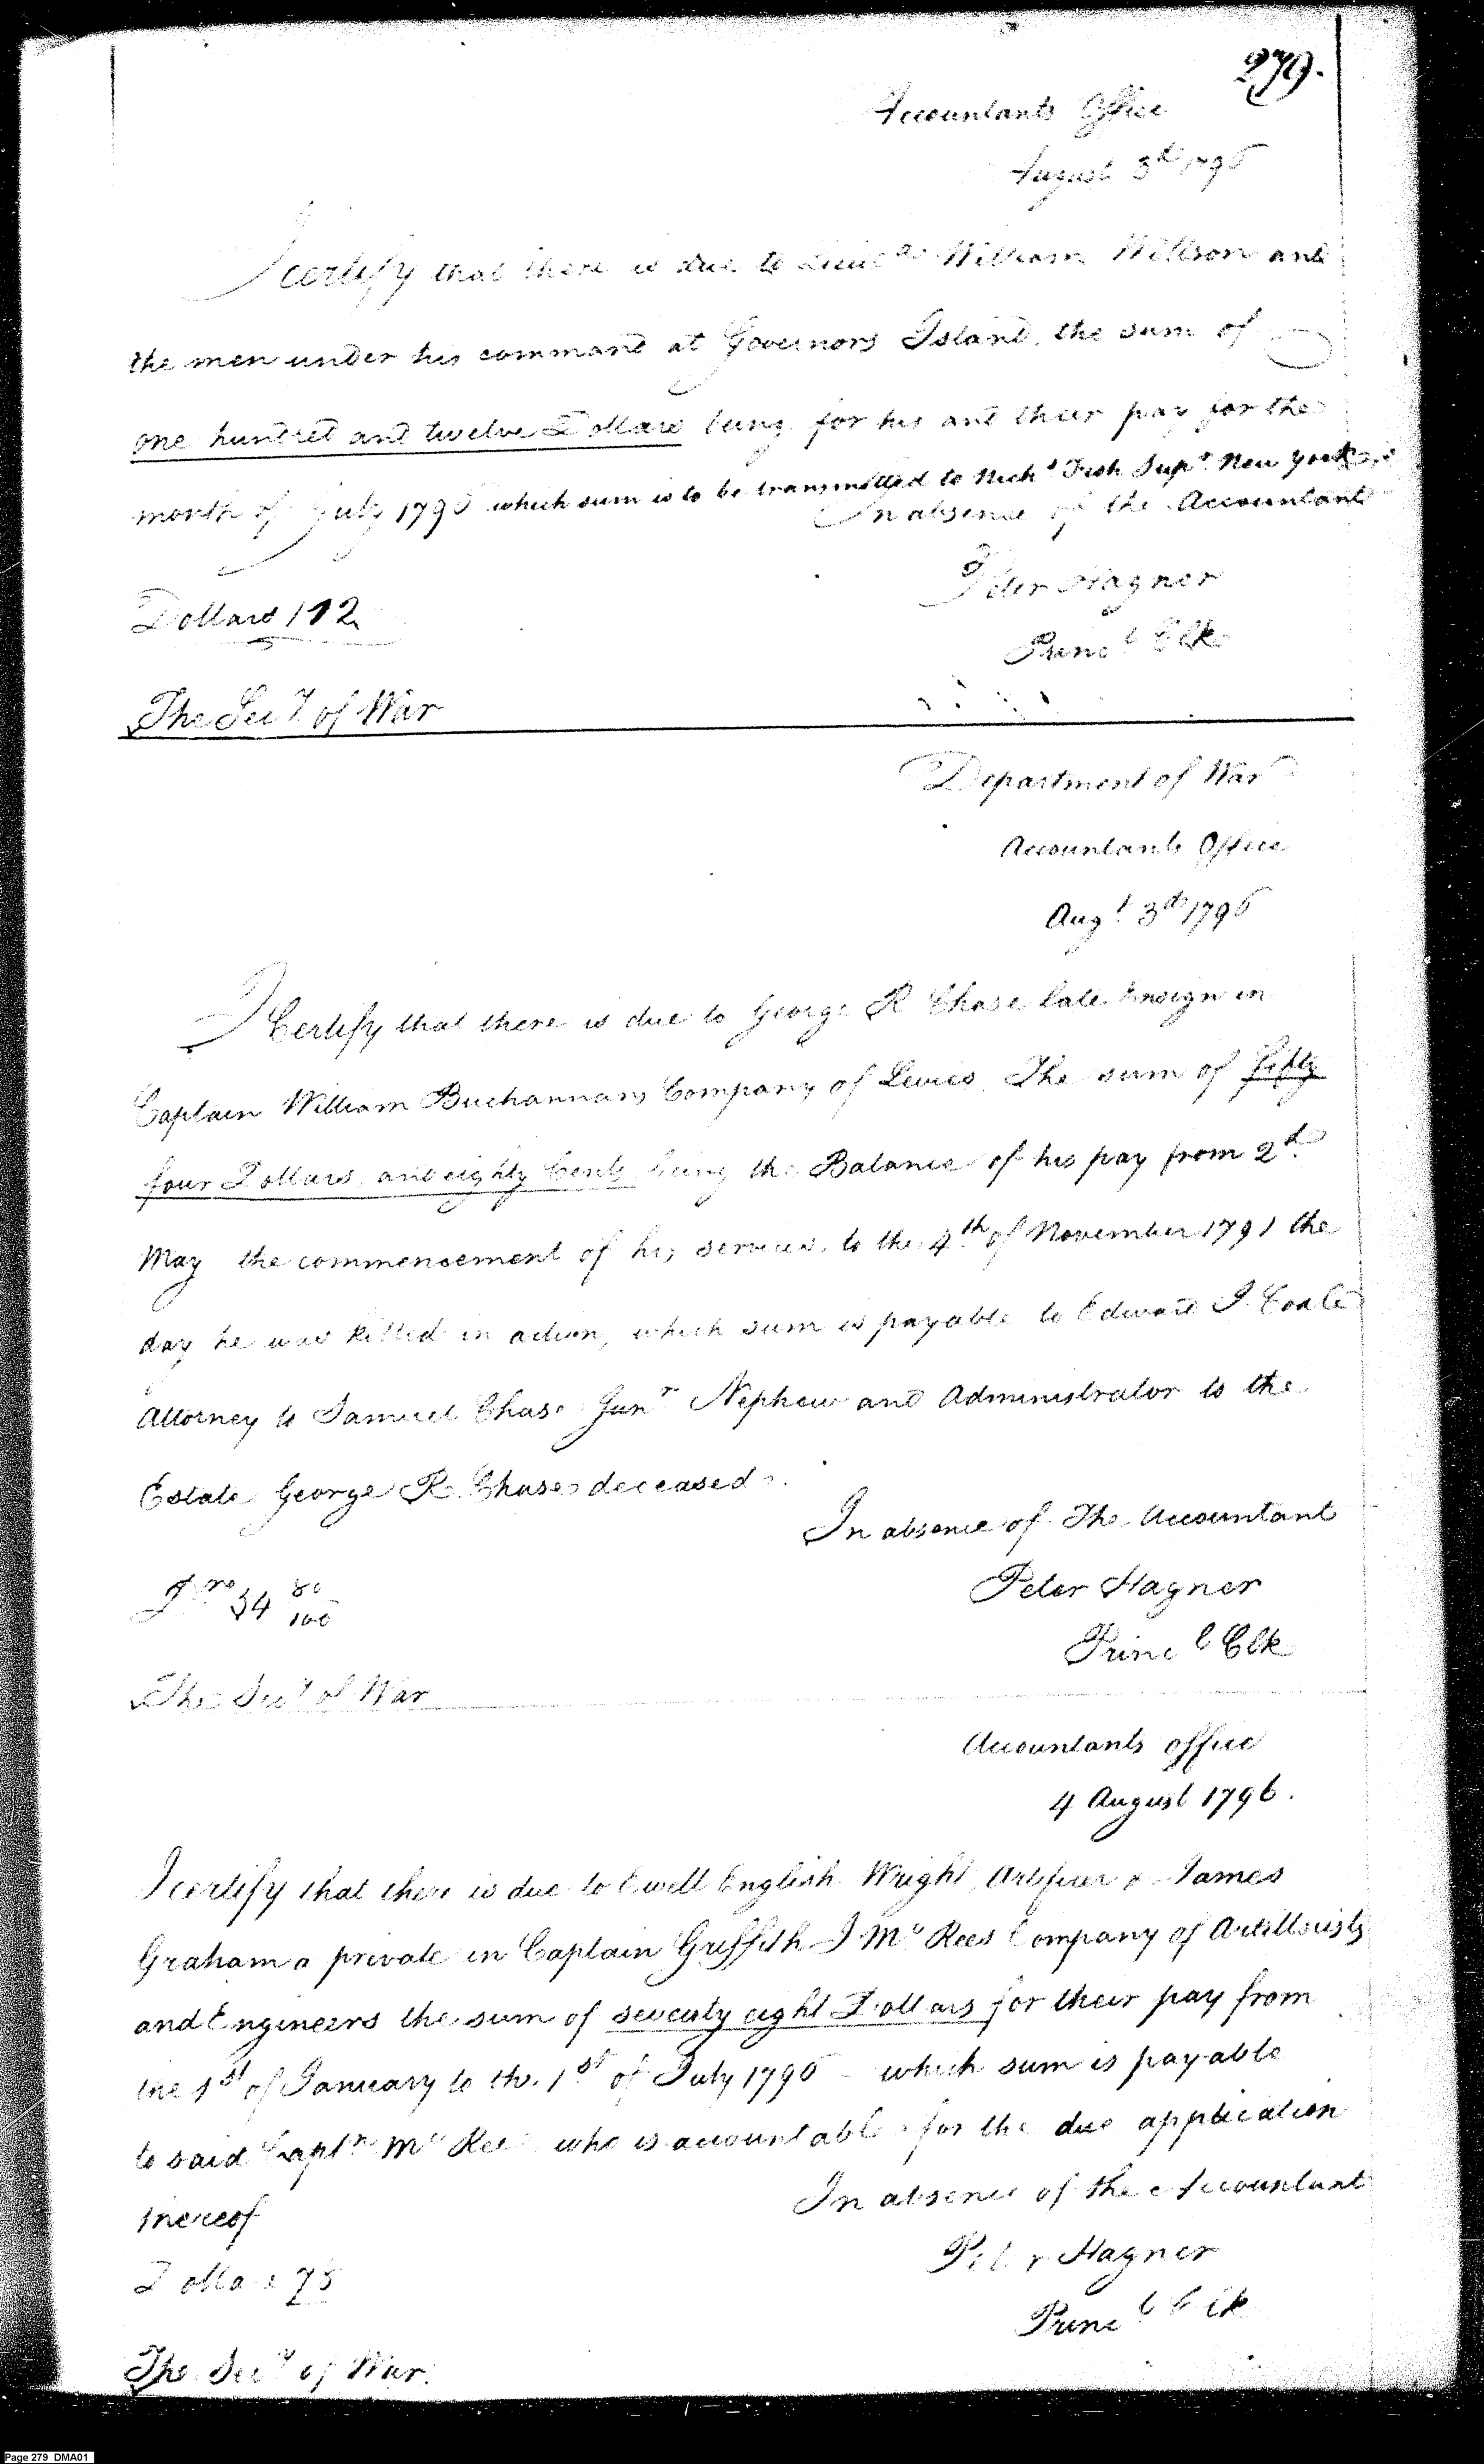 279.
Accountants Office
August 3d 1796
I certify that there is due to Lieut William Willson and
the men under his command at Governors Island, the sum of
one hundred and twelve Dollars being for his and their pay for the
month of July 1796 which sum is to be transmitted to Nichs Fish Supr New York
In absence of the Accountant
Peter Hagner
Dollars 112
Princl Clk
The Secy of War
Department of War
Accountants Office
Augt 3d 1796
I Certify that there is due to George R Chase late Ensign in
Captain William Buchannans Company of Levies The sum of fifty
four Dollars and eighty Cents being the Balance of his pay from 2d
May the commencement of his services to the 4th of November 1791 the
day he was killed in action, which sum is payable to Edward J. Coale
Attorney to Samuel Chase Junr Nephew and Administrator to the
Estate George R. Chase deceased.
In absence of The Accountant
Peter Hagner
54 80/100
Princl Clk
The Secy of War
Accountants office
4 August 1796.
I certify that there is due to Ewell English Wright Artificer & James
Graham a private in Captain Griffith J McRees Company of Artillerists
and Engineers the sum of seventy eight Dollars for their pay from
the 1st of January to the 1st of July 1796 which sum is payable
to said Captn McRee who is accountable for the due application
thereof
In absence of the Accountant
Peter Hagner
Dollars 78
Princl Clk
The Secy of War.
Page 279 DMA01